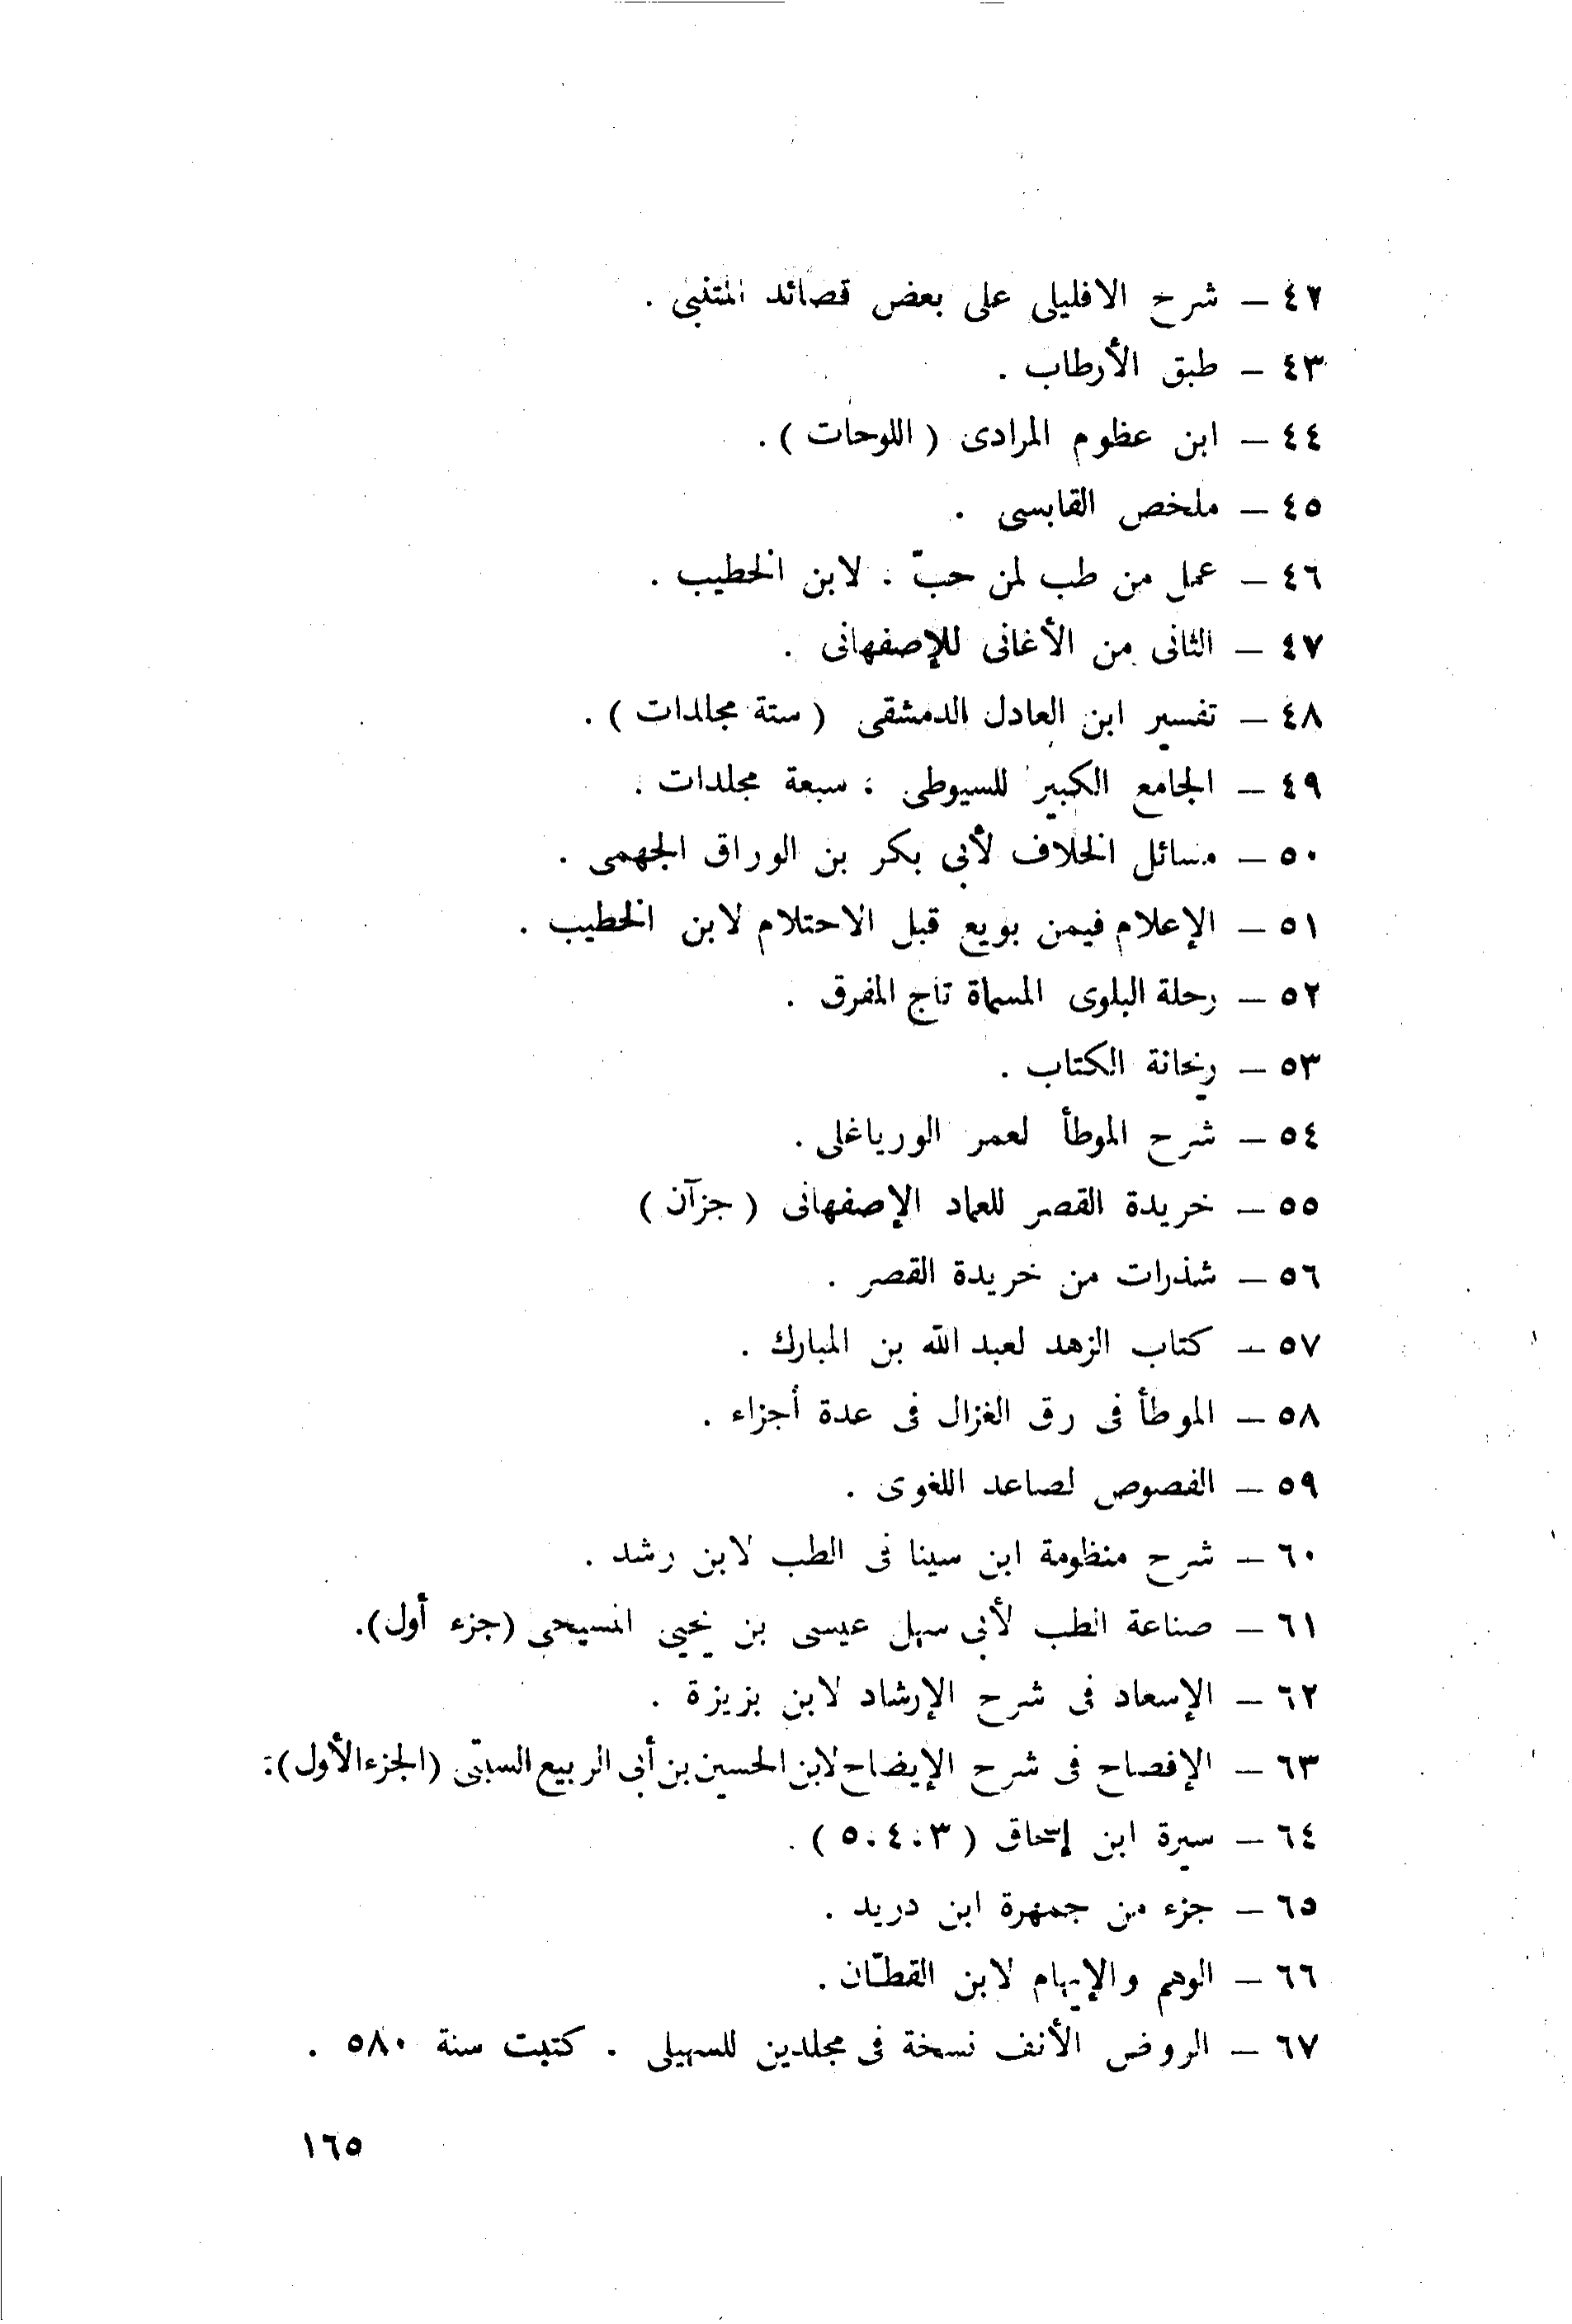 ٤٢ — شرح الافليلى على بعض قصائد المتنبى .
٤٣ — طبق الأرطاب .
٤٤ — ابن عظوم المرادى ( اللوحات ) .
٤٥ — ملخص القابسى .
٤٦ — عمل من طب لمن حبّ . لابن الخطيب .
٤٧ — الثانى من الأغانى للإصفهانى .
٤٨ — تفسير ابن العادل الدمشقى ( ستة مجلدات ) .
٤٩ — الجامع الكبير للسيوطى ؛ سبعة مجلدات .
٥٠ — مسائل الخلاف لأبى بكر بن الوراق الجهمى .
٥١ — الإعلام فيمن بويع قبل الاحتلام لابن الخطيب .
٥٢ — رحلة البلوى المسماة تاج المفرق .
٥٣ — ريحانة الكتاب .
٥٤ — شرح الموطأ لعمر الورياغلى .
٥٥ — خريدة القصر للعماد الإصفهانى ( جزآن )
٥٦ — شذرات من خريدة القصر .
٥٧ — كتاب الزهد لعبد الله بن المبارك .
٥٨ — الموطأ فى رق الغزال فى عدة أجزاء .
٥٩ — الفصوص لصاعد اللغوى .
٦٠ — شرح منظومة ابن سينا فى الطب لابن رشد .
٦١ — صناعة الطب لأبى سهل عيسى بن يحيى المسيحى (جزء أول).
٦٢ — الإسعاد فى شرح الإرشاد لابن بزيزة .
٦٣ — الإفصاح فى شرح الإيضاح لابن الحسين بن أبى الربيع السبتى (الجزء الأول).
٦٤ — سيرة ابن إسحاق ( ٣ . ٤ . ٥ ) .
٦٥ — جزء من جمهرة ابن دريد .
٦٦ — الوهم والإيهام لابن القطّان .
٦٧ — الروض الأنف نسخة فى مجلدين للسهيلى . كتبت سنة ٥٨٠ .
١٦٥